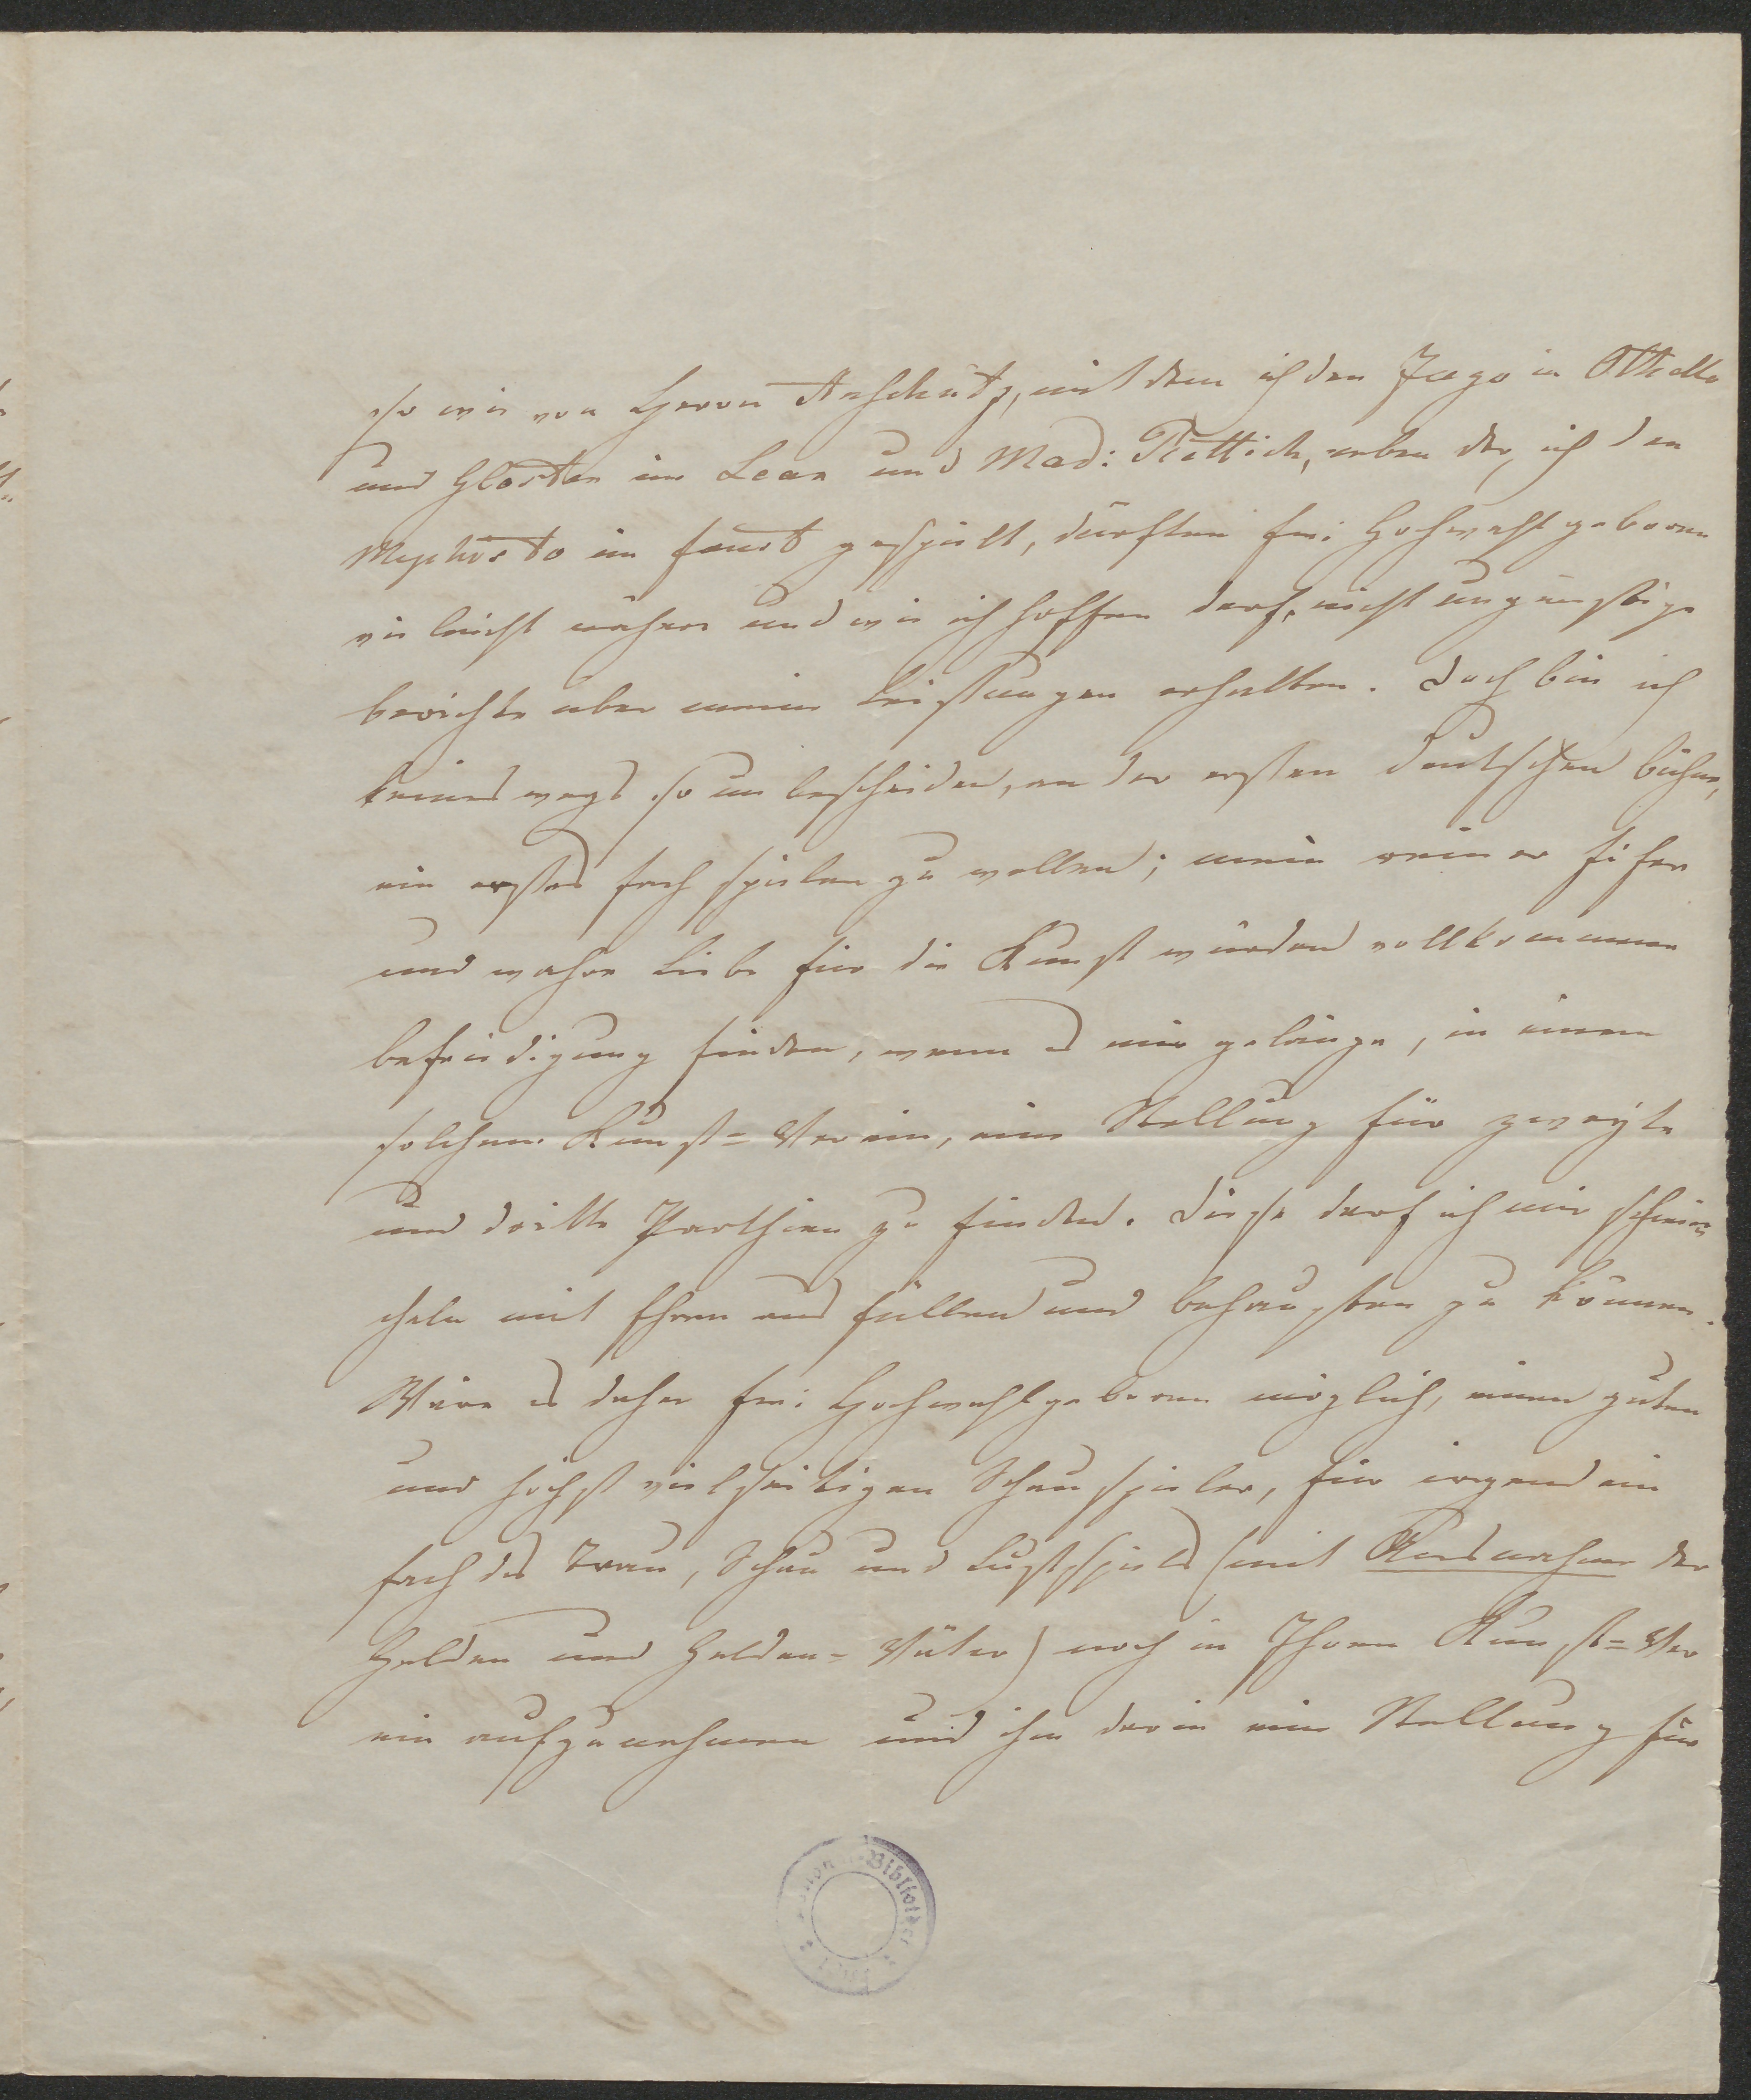 so wie von Herrn Anschütz, mit dem ich den Jago in Othello
und Gloster im Lear und Mad: Rettich, neben der, ich den
Mephisto im Faust gespielt, dürften Eu: Hochwohlgeboren
vieleicht nähere und wie ich hoffen darf, nicht ungünstige
berichte über meine Leistungen erhalten. Doch bin ich
keineswegs so unbescheiden, an der ersten deutschen bühne,
ein erstes Fach spielen zu wollen; mein reiner Eifer
und wahre Liebe für die Kunst würden vollkommene
befriedigung finden, wenn es mir gelänge, in einem
solchem Kunst=Verein, eine Stellung für zweyte
und dritte Parthien zu finden. Diese darf ich mir schmei=
cheln mit Ehren aus füllen und behaupten zu können.
Wäre es daher Eu: Hochwohlgeboren möglich, einen guten
und höchst vielseitigen Schauspieler, für irgend ein
Fach des Trau, Schau und Lustspiels (mit Ausnahme der
Helden und Helden=Väter) noch in Ihren Kunst=Ver
ein aufzunehmen und ihm darin eine Stellung für
Bibliothek